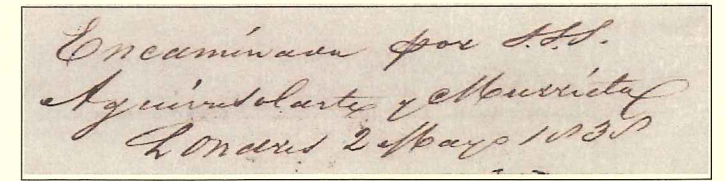 Encaminada por S.S.S.
Aguirresolarte y Murrieta
Londres 2 Mayo 1838